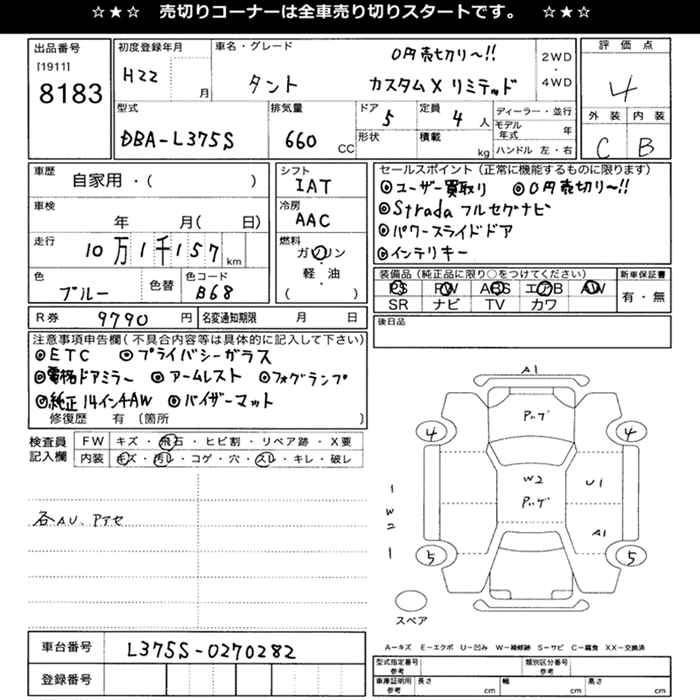 ☆★☆ 売切りコーナーは全車売り切りスタートです。 ☆★☆
出品番号
[1911]
8183
初度登録年月
H22 月
車名・グレード
0円売切リ〜!!
タント カスタムX リミテッド
2WD
・
4WD
評価点
4
外装 内装
C B
型式
DBA-L375S
排気量
660 CC
ドア 5
形状
定員 4 人
積載 kg
ディーラー・並行
モデル年式 年
ハンドル 左・右
車歴
自家用・( )
車検
年 月( 日)
走行
10万1千157 km
色
ブルー
色替
色コード
B68
シフト
IAT
冷房
AAC
燃料
ガソリン
・
軽・油
( )
セールスポイント(正常に機能するものに限ります)
◎ユーザー買取リ ◎0円売切リ〜!!
◎Stradaフルセグナビ
◎パワースライドドア
◎インテリキー
装備品(純正品に限り○をつけてください)
PS PW ABS エアB AW
SR ナビ TV カワ
新車保証書
有・無
R券 9790 円
名変通知期限 月 日
後日品
注意事項申告欄(不具合内容等は具体的に記入して下さい)
◎ETC ◎プライバシーガラス
◎電格ドアミラー ◎アームレスト ◎フォグランプ
◎純正14インチAW ◎バイザーマット
修復歴 有 〔箇所 〕
検査員
記入欄
FW キズ・飛石・ヒビ割・リペア跡・X要
内装 キズ・汚レ・コゲ・穴・スレ・キレ・破レ
各AU、アアセ
A1
4 4
W2
U1
A1
W2
5 5
スペア
A—キズ E—エクボ U—凹み W—補修跡 S—サビ C—腐食 XX—交換済
車台番号 L375S-0270282
登録番号
型式指定番号
参考
類別区分番号
参考
車庫証明用
参考
長さ cm
幅 cm
高さ cm